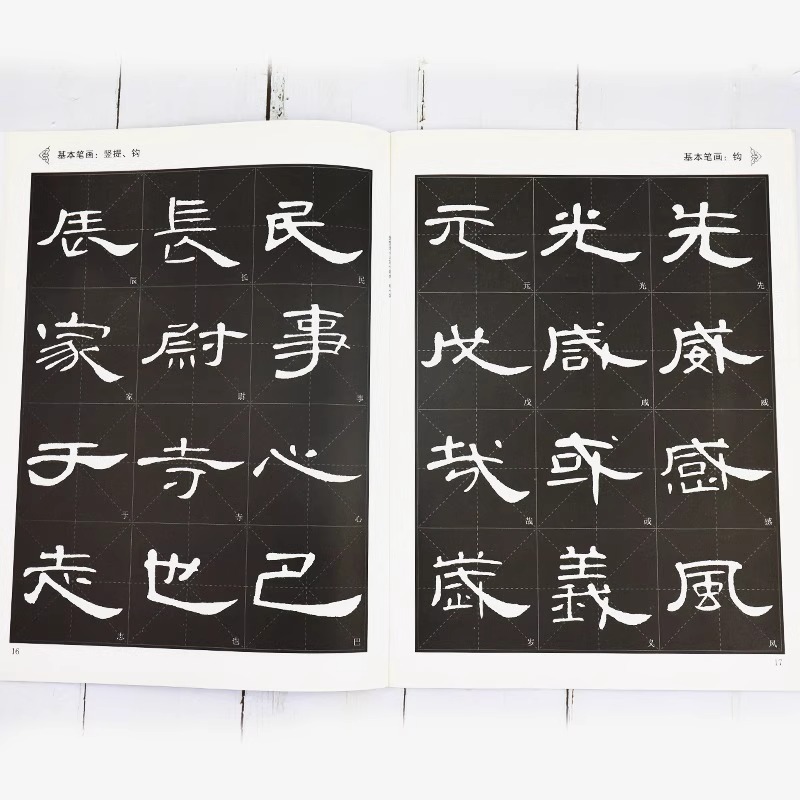 基本笔画：竖提、钩
辰 長 民
辰 长 民
家 尉 事
家 尉 事
于 寺 心
于 寺 心
志 也 巴
志 也 巴
16
基本笔画：钩
元 光 先
元 光 先
戊 咸 威
戊 咸 威
哉 或 感
哉 或 感
歲 義 風
岁 义 风
17